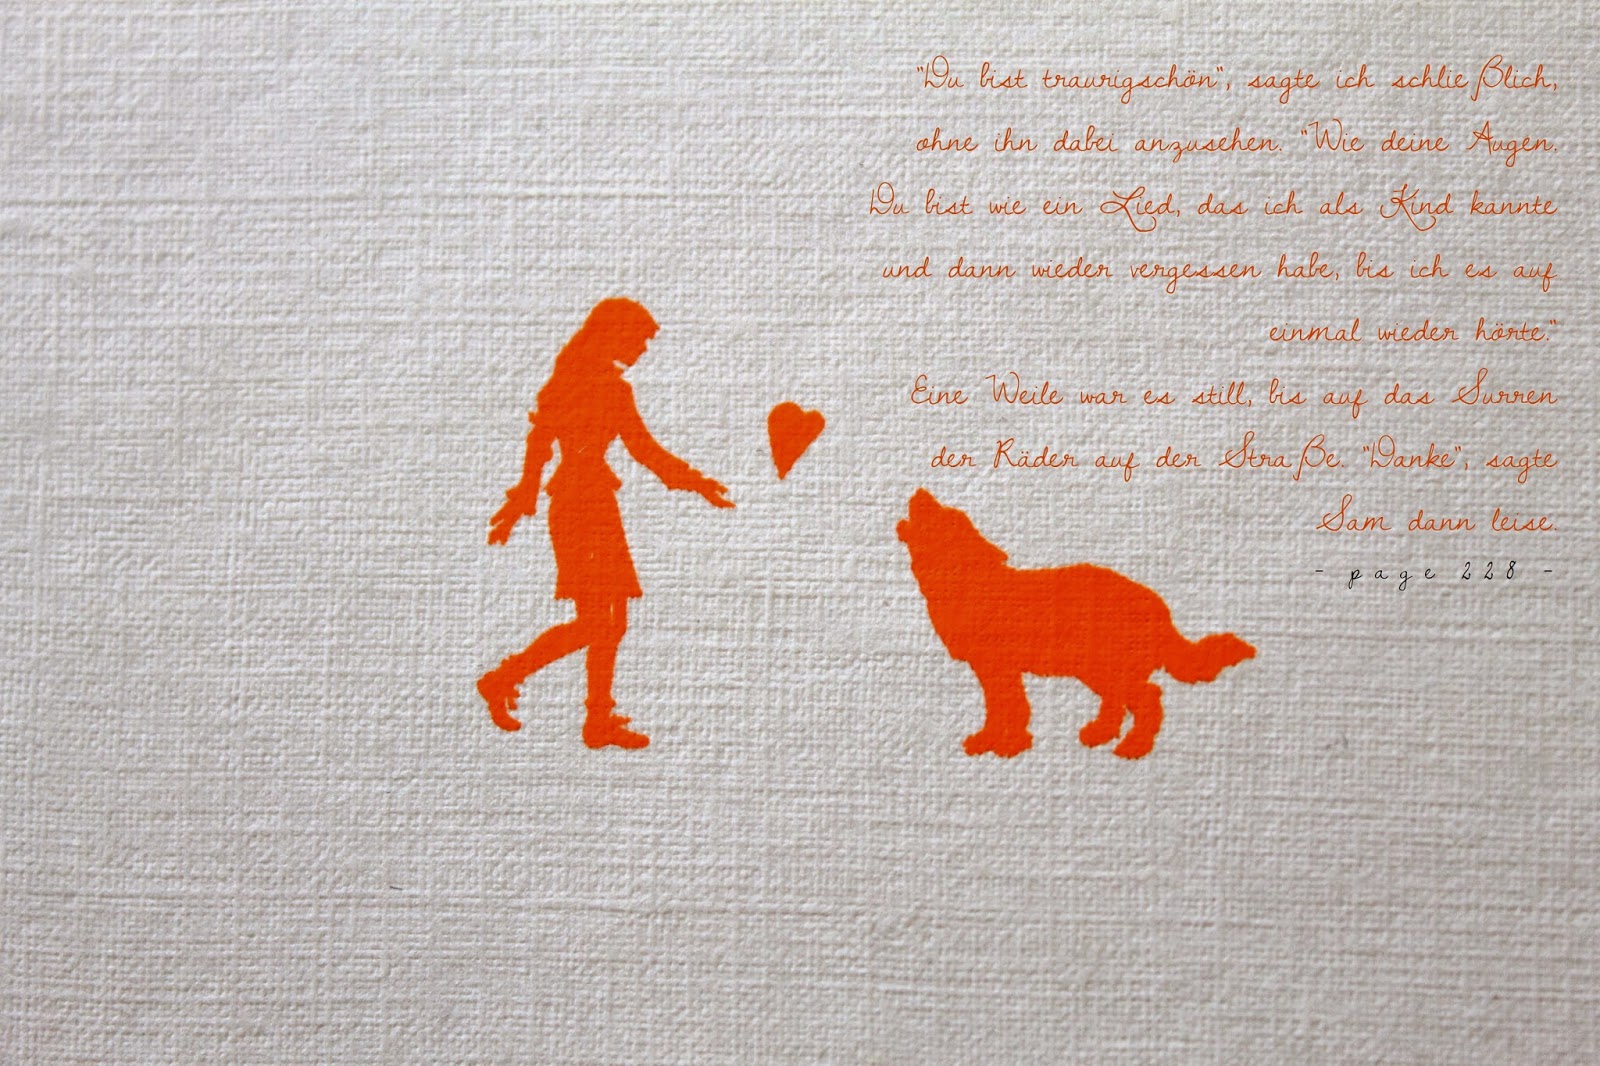 "Du bist traurigschön", sagte ich schließlich,
ohne ihn dabei anzusehen. "Wie deine Augen.
Du bist wie ein Lied, das ich als Kind kannte
und dann wieder vergessen habe, bis ich es auf
einmal wieder hörte."
Eine Weile war es still, bis auf das Surren
der Räder auf der Straße. "Danke", sagte
Sam dann leise.
- page 228 -